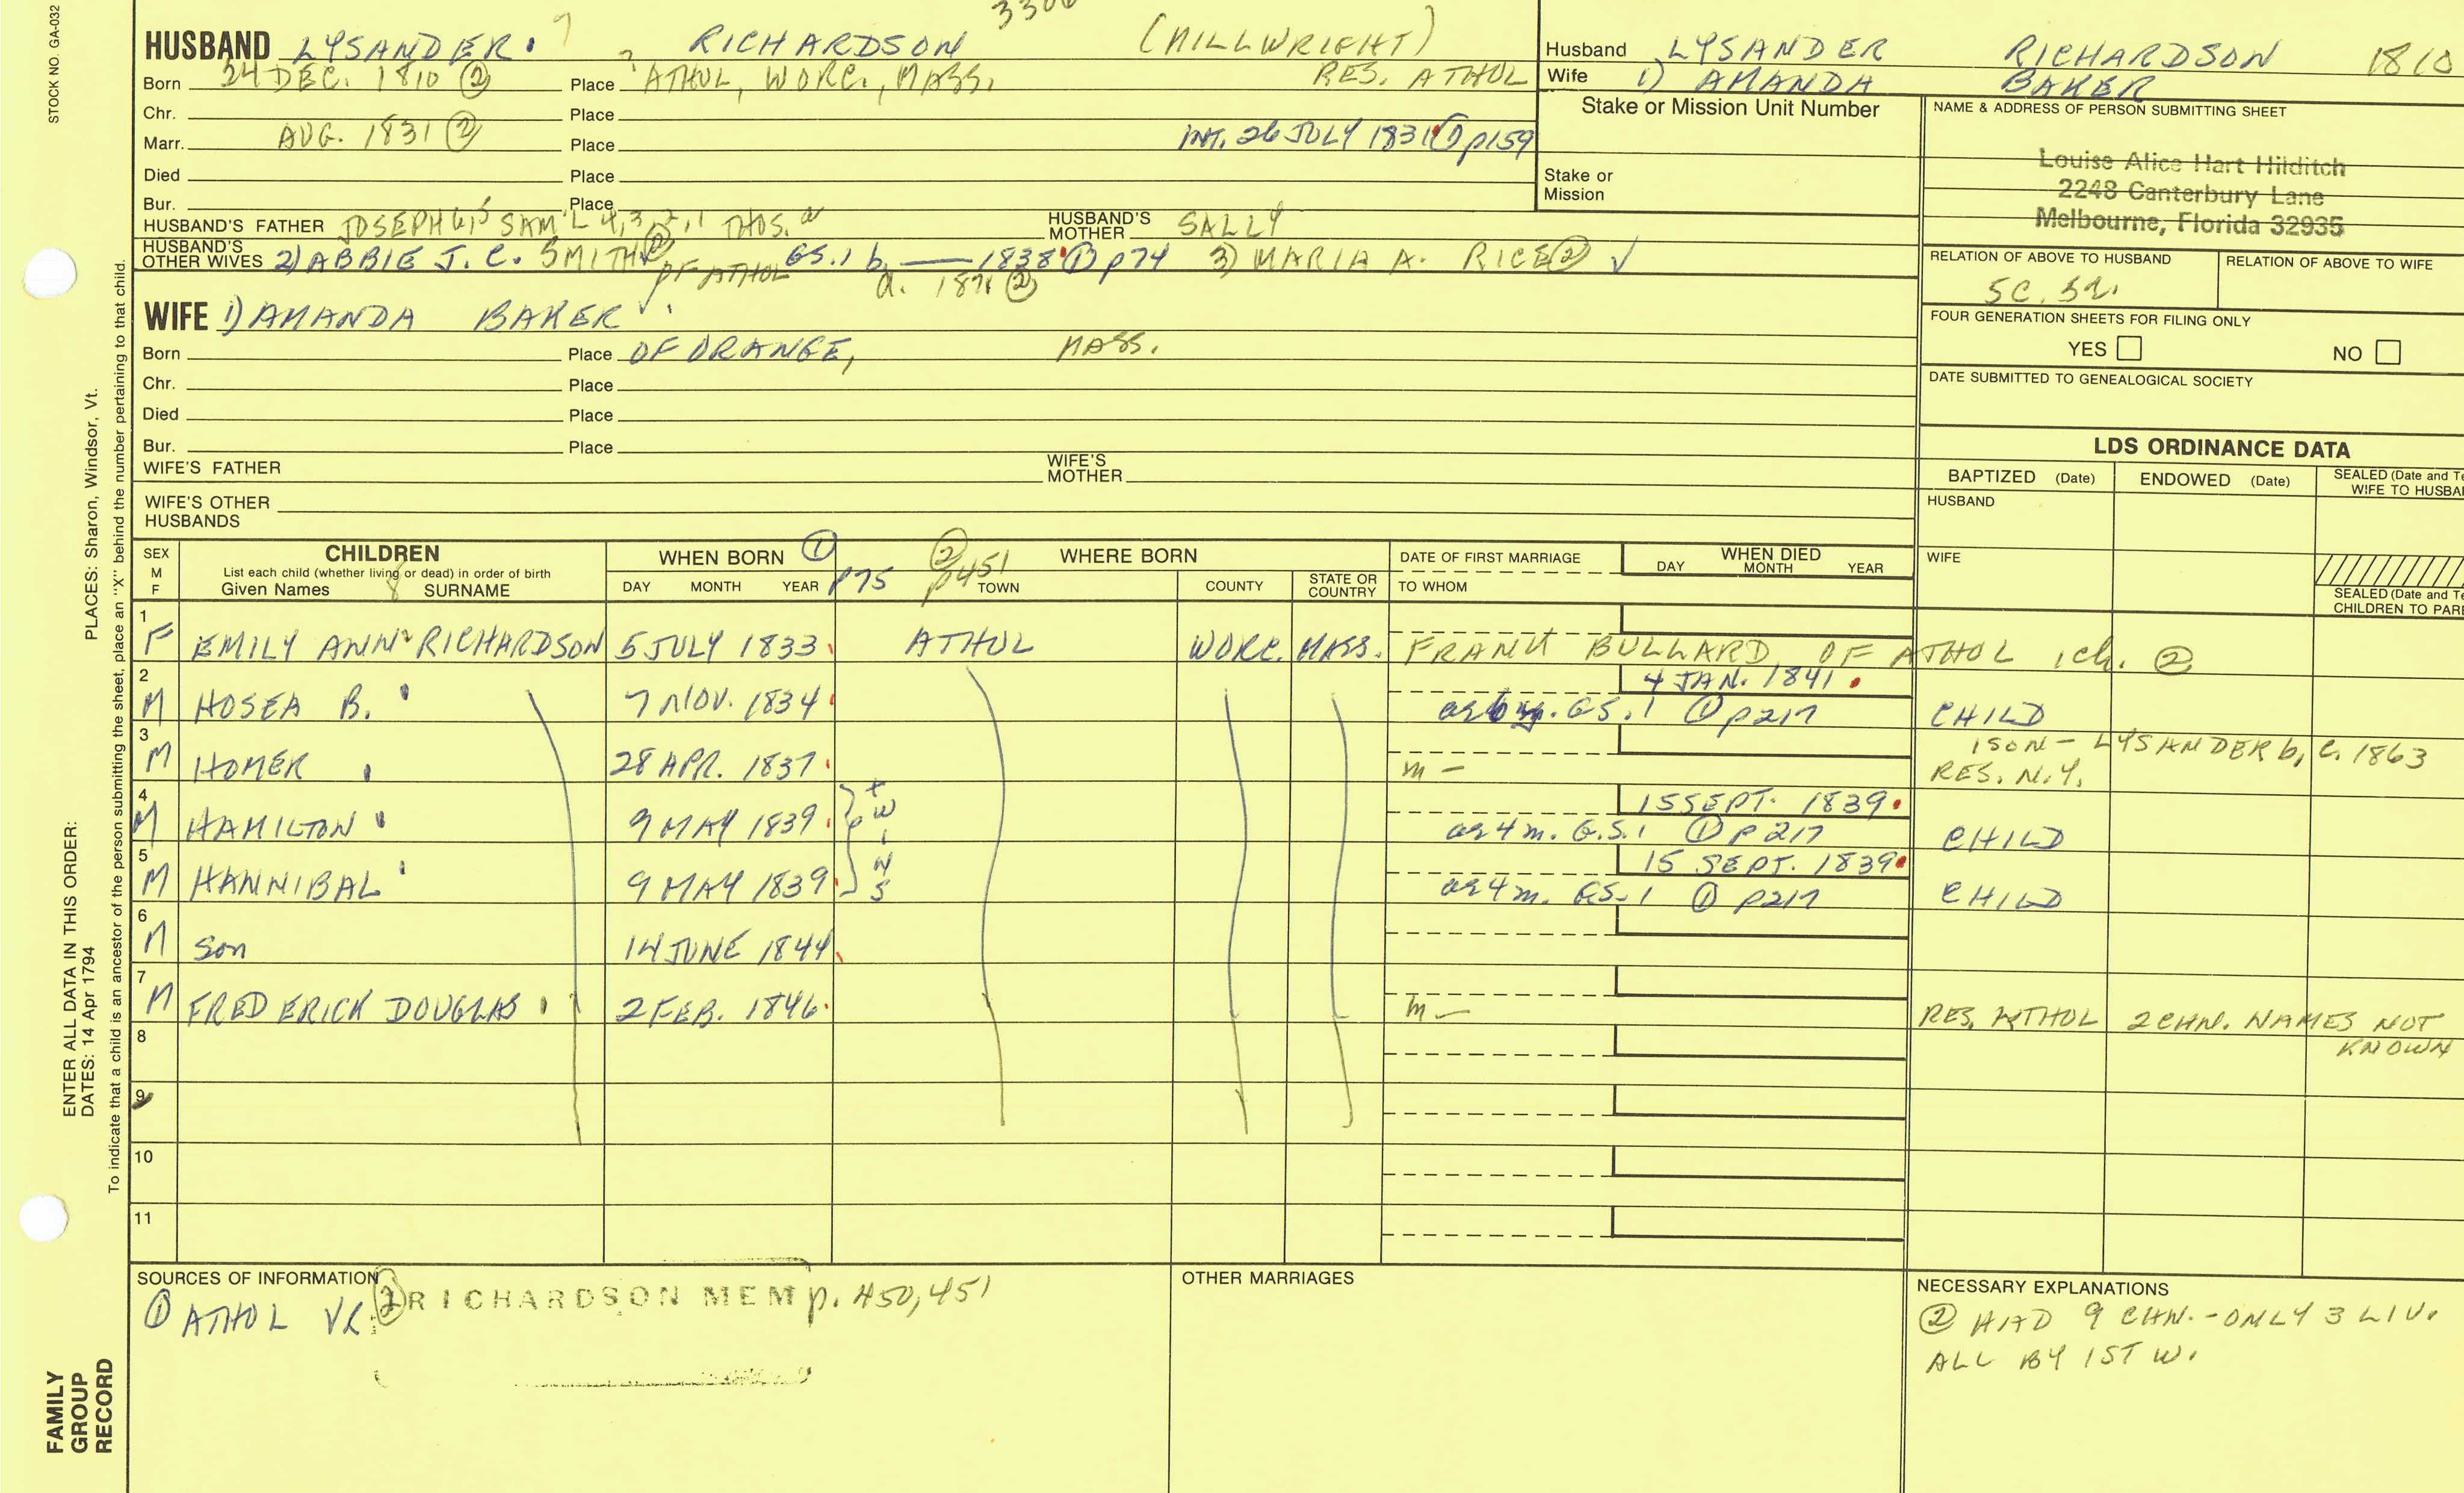 STOCK NO. GA-032
3306
HUSBAND LYSANDER RICHARDSON (MILLWRIGHT)
Born 24 DEC. 1810 ② Place ATHOL, WORC., MASS. RES. ATHOL
Chr. Place
Marr. AUG. 1831 ② Place INT. 26 JULY 1831 ① p159
Died Place
Bur. Place
HUSBAND'S FATHER JOSEPH 6, 5 SAM'L 4, 3, 2, 1 THOS. HUSBAND'S MOTHER SALLY
HUSBAND'S OTHER WIVES 2) ABBIE J. C. SMITH ② GS.1 b. — 1838 ① p74 3) MARIA A. RICE ② ✓
OF ATHOL d. 1871 ②
WIFE 1) AMANDA BAKER
Born Place OF ORANGE, MASS.
Chr. Place
Died Place
Bur. Place
WIFE'S FATHER WIFE'S MOTHER
WIFE'S OTHER HUSBANDS
Husband LYSANDER RICHARDSON 1810
Wife 1) AMANDA BAKER
Stake or Mission Unit Number
Stake or Mission
NAME & ADDRESS OF PERSON SUBMITTING SHEET
Louise Alice Hart Hilditch
2248 Canterbury Lane
Melbourne, Florida 32935
RELATION OF ABOVE TO HUSBAND RELATION OF ABOVE TO WIFE
5C, 5R.
FOUR GENERATION SHEETS FOR FILING ONLY
YES NO
DATE SUBMITTED TO GENEALOGICAL SOCIETY
LDS ORDINANCE DATA
BAPTIZED (Date) ENDOWED (Date) SEALED (Date and Te
WIFE TO HUSBA
HUSBAND
WIFE
SEALED (Date and Te
CHILDREN TO PARE
SEX M F CHILDREN WHEN BORN ① ② WHERE BORN DATE OF FIRST MARRIAGE WHEN DIED
List each child (whether living or dead) in order of birth p75 p451 DAY MONTH YEAR
Given Names SURNAME DAY MONTH YEAR TOWN COUNTY STATE OR COUNTRY TO WHOM
1 F EMILY ANN RICHARDSON 5 JULY 1833 ATHOL WORC. MASS. FRANK BULLARD OF ATHOL 1 ch. ②
2 M HOSEA B. 7 NOV. 1834 4 JAN. 1841
ae 6 y. GS.1 ① p217 CHILD
3 M HOMER 28 APR. 1837 m – 1 SON – LYSANDER b, c. 1863
RES. N.Y.
4 M HAMILTON 9 MAY 1839 TWINS 15 SEPT. 1839
ae 4 m. G.S.1 ① p217 CHILD
5 M HANNIBAL 9 MAY 1839 15 SEPT. 1839
ae 4 m. GS.1 ① p217 CHILD
6 M Son 14 JUNE 1844
7 M FREDERICK DOUGLAS 2 FEB. 1846 m – RES. ATHOL 2 CHN. NAMES NOT
KNOWN
8
9
10
11
SOURCES OF INFORMATION
① ATHOL VR ② RICHARDSON MEM p. 450, 451
OTHER MARRIAGES
NECESSARY EXPLANATIONS
② HAD 9 CHN. – ONLY 3 LIV.
ALL BY 1ST W.
ENTER ALL DATA IN THIS ORDER:
DATES: 14 Apr 1794 PLACES: Sharon, Windsor, Vt.
To indicate that a child is an ancestor of the person submitting the sheet, place an "X" behind the number pertaining to that child.
FAMILY
GROUP
RECORD